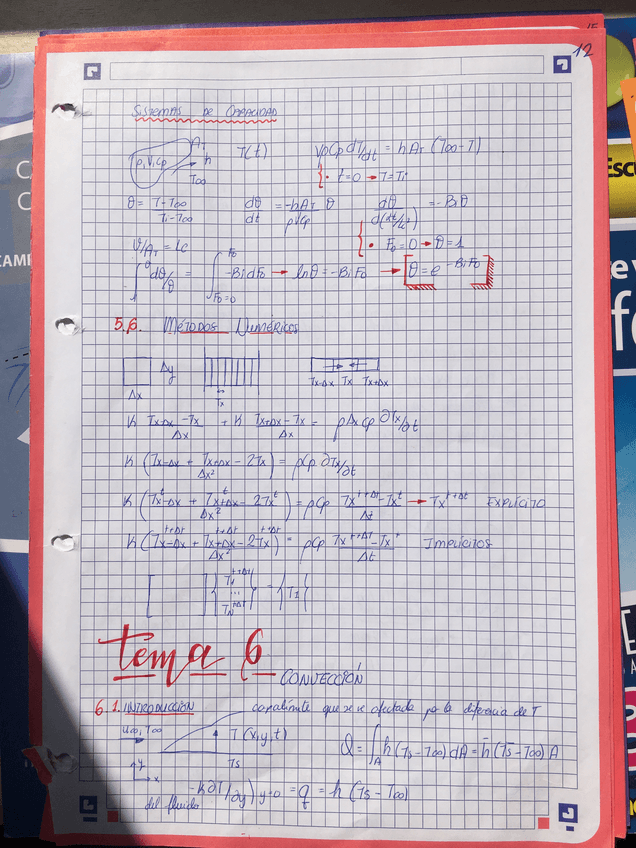 12
SISTEMAS DE CAPACIDAD
ρ,V,Cp A_T h T∞ T(t) VρCp dT/dt = hA_T (T∞-T)
• t=0 → T=Ti
θ = T-T∞ / Ti-T∞ dθ/dt = -hA_T/ρVCp θ dθ/d(αt/Lc²) = -Bi θ
V/A_T = Lc • Fo=0 → θ=1
∫₁^θ dθ/θ = ∫_{Fo=0}^{Fo} -Bi dFo → lnθ = -Bi Fo → θ = e^{-BiFo}
5.6. MÉTODOS NUMÉRICOS
Δy
Δx Tx Tx-Δx Tx Tx+Δx
K Tx-Δx - Tx / Δx + K Tx+Δx - Tx / Δx = ρΔxCp ∂Tx/∂t
K (Tx-Δx + Tx+Δx - 2Tx / Δx²) = ρCp ∂Tx/∂t
K (Tx-Δx^t + Tx+Δx^t - 2Tx^t / Δx²) = ρCp Tx^{t+Δt} - Tx^t / Δt → Tx^{t+Δt} EXPLÍCITO
K (Tx-Δx^{t+Δt} + Tx+Δx^{t+Δt} - 2Tx^{t+Δt} / Δx²) = ρCp Tx^{t+Δt} - Tx^t / Δt IMPLÍCITOS
[ ] { T₁^{t+Δt} ... T_N^{t+Δt} } = { T1 }
tema 6
CONVECCIÓN
6.1. INTRODUCCIÓN capa límite que se ve afectada por la diferencia de T
u∞, T∞ T (x,y,t) Q = ∫_A h (Ts-T∞) dA = h̄ (T̄s-T∞) A
y x Ts
-k ∂T/∂y)y=0 = q = h (Ts-T∞)
del fluido